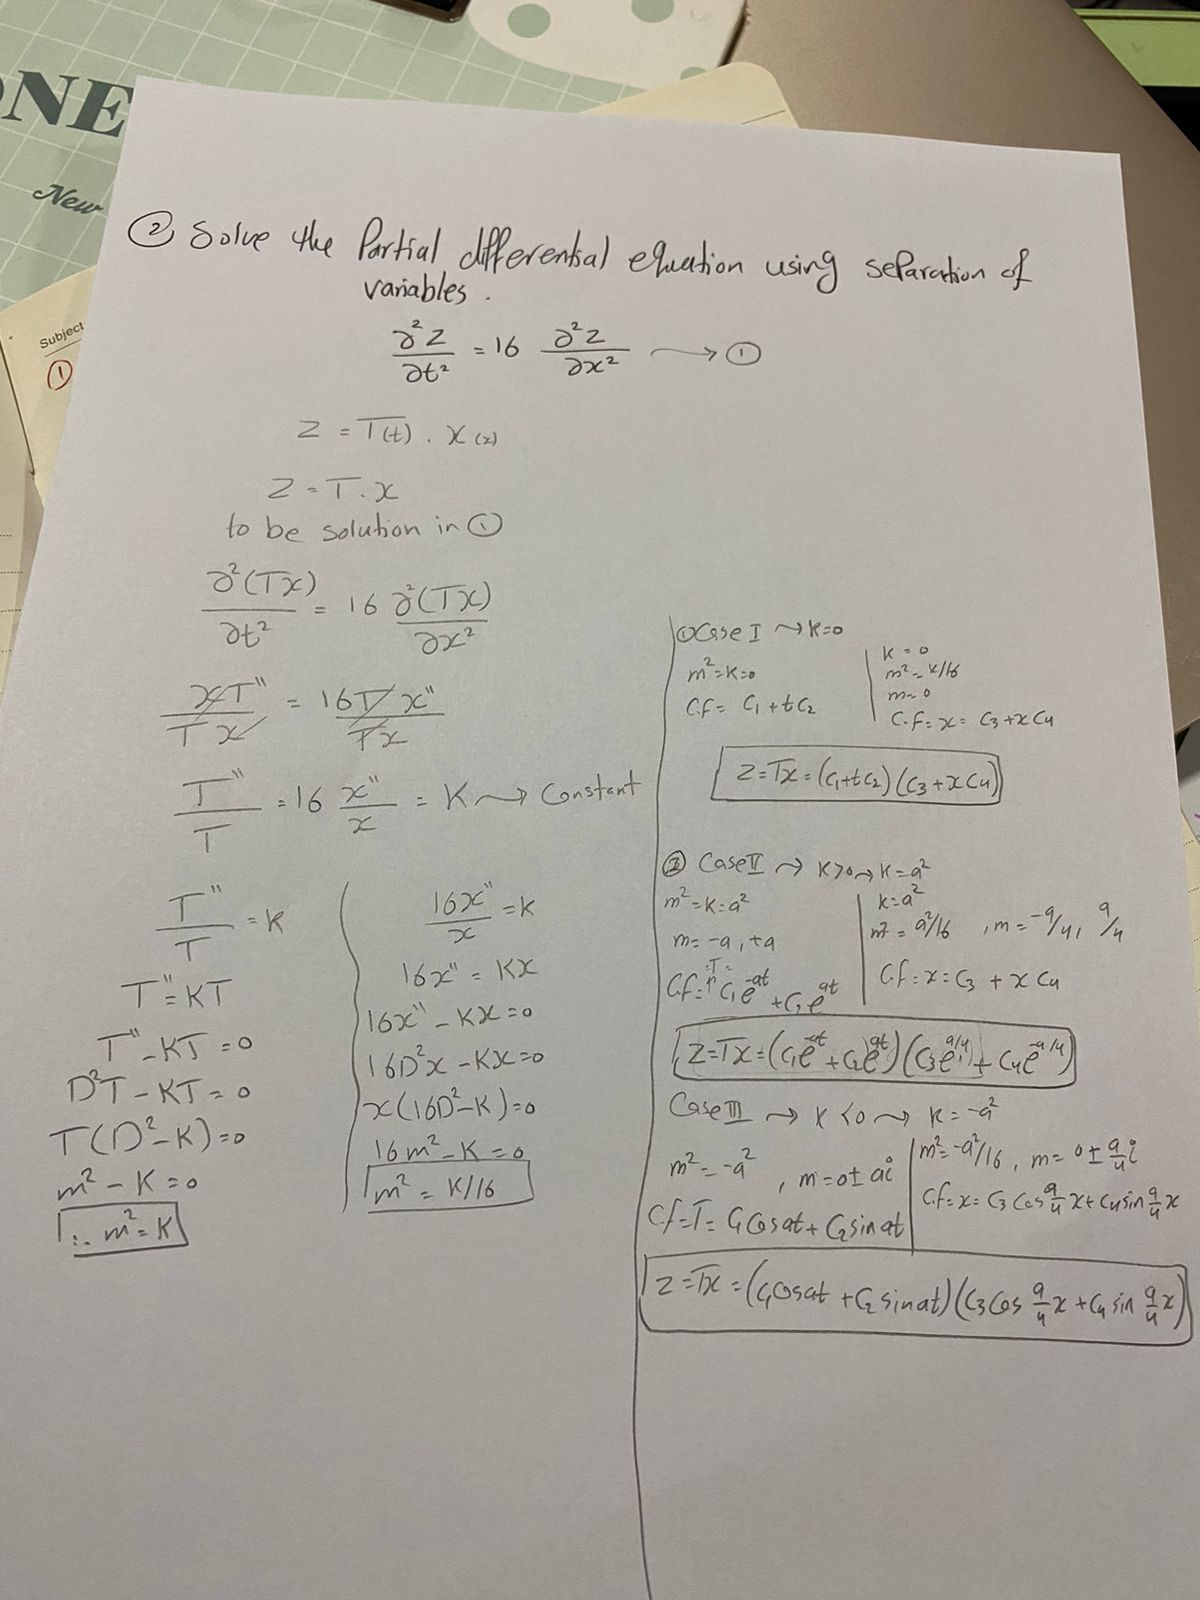 ONE
New
Subject
①
② Solve the Partial differential equation using separation of
variables.
∂²Z/∂t² = 16 ∂²Z/∂x² → ①
Z = T(t) . X(x)
Z = T . x
to be solution in ①
∂²(Tx)/∂t² = 16 ∂²(Tx)/∂x²
xT"/Tx = 16T x"/Tx
T"/T = 16 x"/x = K → Constant
T"/T = K
T" = KT
T" - KT = 0
D²T - KT = 0
T(D² - K) = 0
m² - K = 0
∴ m² = K
16x"/x = K
16x" = Kx
16x" - Kx = 0
16D²x - Kx = 0
x(16D² - K) = 0
16m² - K = 0
m² = K/16
① Case I → K=0
m² = K = 0
C.f = C₁ + tC₂
K = 0
m² = K/16
m = 0
C.f = x = C₃ + xC₄
Z = Tx = (C₁+tC₂)(C₃+xC₄)
② Case II → K>0 → K=a²
m² = K = a²
m = -a, +a
C.f = T = C₁e^-at + C₂e^at
K = a²
m² = a²/16 , m = -a/4, a/4
C.f = x = C₃ + xC₄
Z = Tx = (C₁e^-at + C₂e^at)(C₃e^a/4 + C₄e^-a/4)
Case III → K<0 → K = -a²
m² = -a² , m = 0 ± ai
Cf = T = C₁Cosat + C₂sinat
m² = -a²/16 , m = 0 ± a/4 i
C.f = x = C₃ Cos a/4 x + C₄ sin a/4 x
Z = Tx = (C₁Cosat + C₂ sinat)(C₃Cos a/4 x + C₄ sin a/4 x)